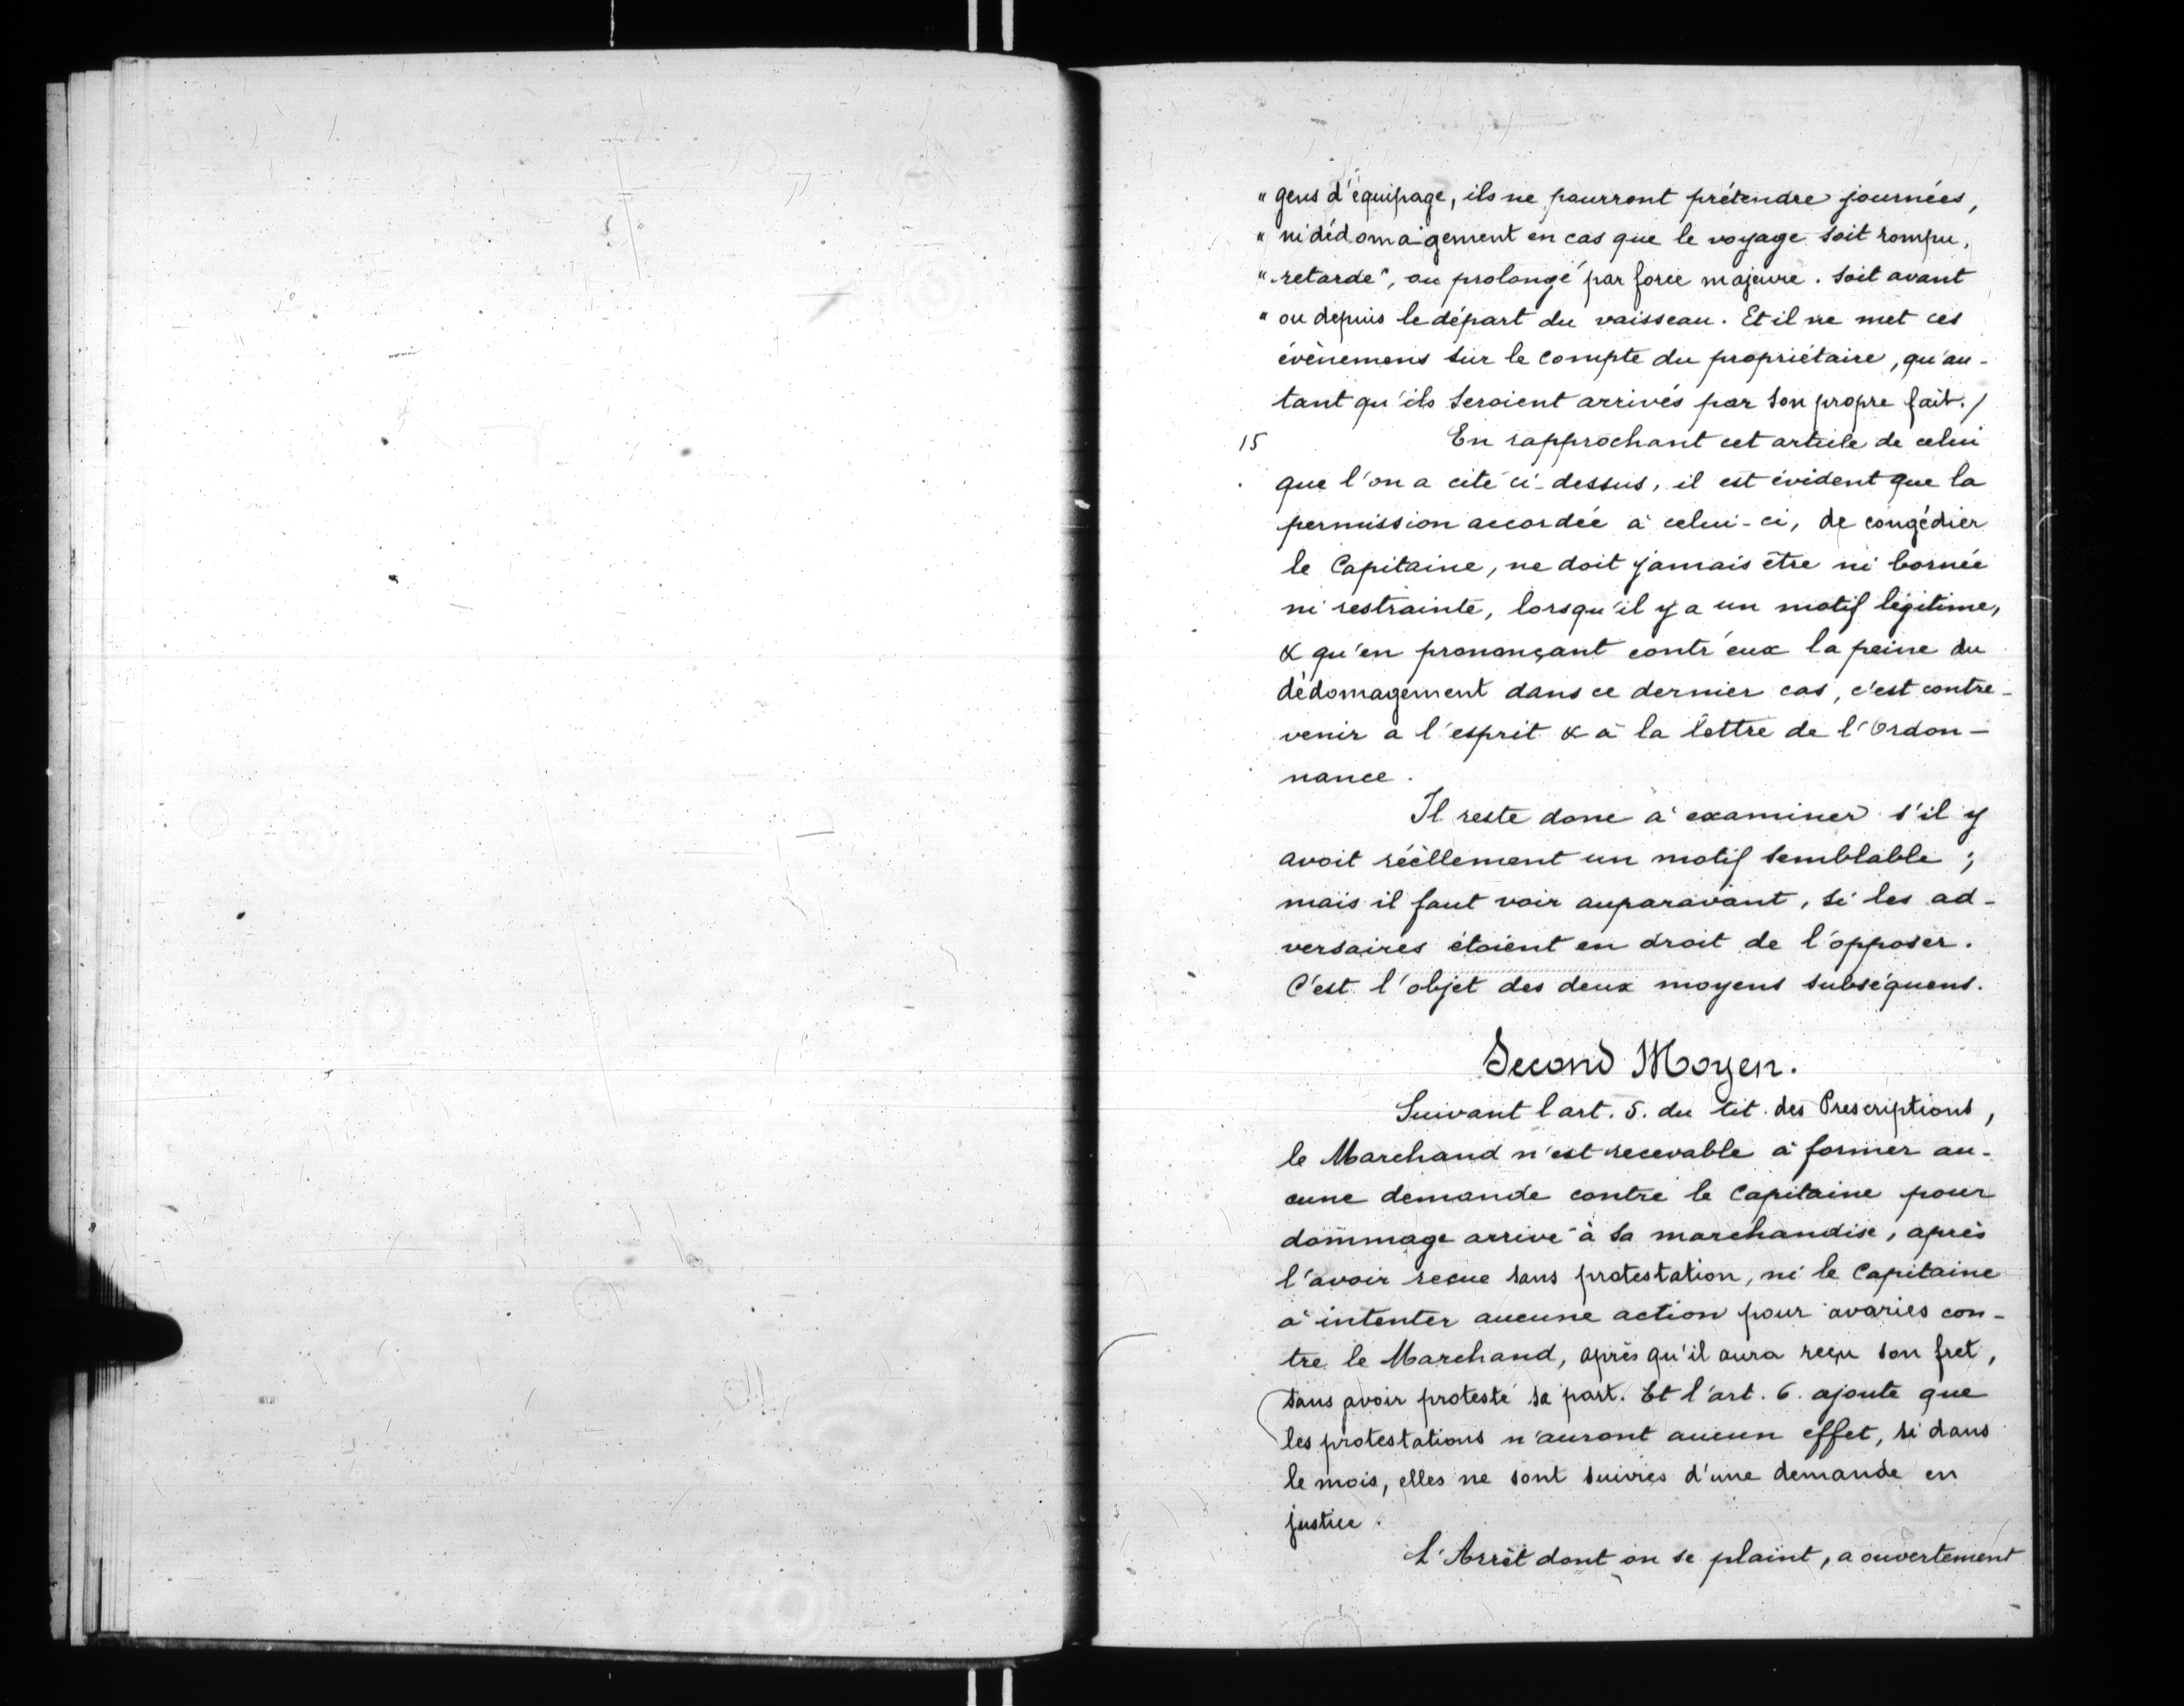 " gens d'équipage, ils ne pourront prétendre journées,
" ni dédomaigement en cas que le voyage soit rompu,
" retardé, ou prolongé par force majeure. soit avant
" ou depuis le départ du vaisseau. Et il ne met ces
évènemens sur le compte du propriétaire, qu'au-
tant qu'ils seroient arrivés par son propre fait./
15 En rapprochant cet article de celui
que l'on a cité ci-dessus, il est évident que la
permission accordée à celui-ci, de congédier
le Capitaine, ne doit jamais être ni bornée
ni restrainte, lorsqu'il y a un motif légitime,
& qu'en prononçant contr'eux la peine du
dédomagement dans ce dernier cas, c'est contre-
venir a l'esprit & à la lettre de l'Ordon-
nance.
Il reste donc à examiner s'il y
avoit réèllement un motif semblable ;
mais il faut voir auparavant, si les ad-
versaires étoient en droit de l'opposer.
C'est l'objet des deux moyens subséquens.
Second Moyen.
Suivant l'art. 5. du tit. des Prescriptions,
le Marchand n'est recevable à former au-
cune demande contre le Capitaine pour
dommage arrivé à sa marchandise, après
l'avoir reçue sans protestation, ni le Capitaine
à intenter aucune action pour avaries con-
tre le Marchand, après qu'il aura reçu son fret,
sans avoir protesté sa part. Et l'art. 6. ajoute que
les protestations n'auront aucun effet, si dans
le mois, elles ne sont suivies d'une demande en
justice.
L'Arrêt dont on se plaint, a ouvertement